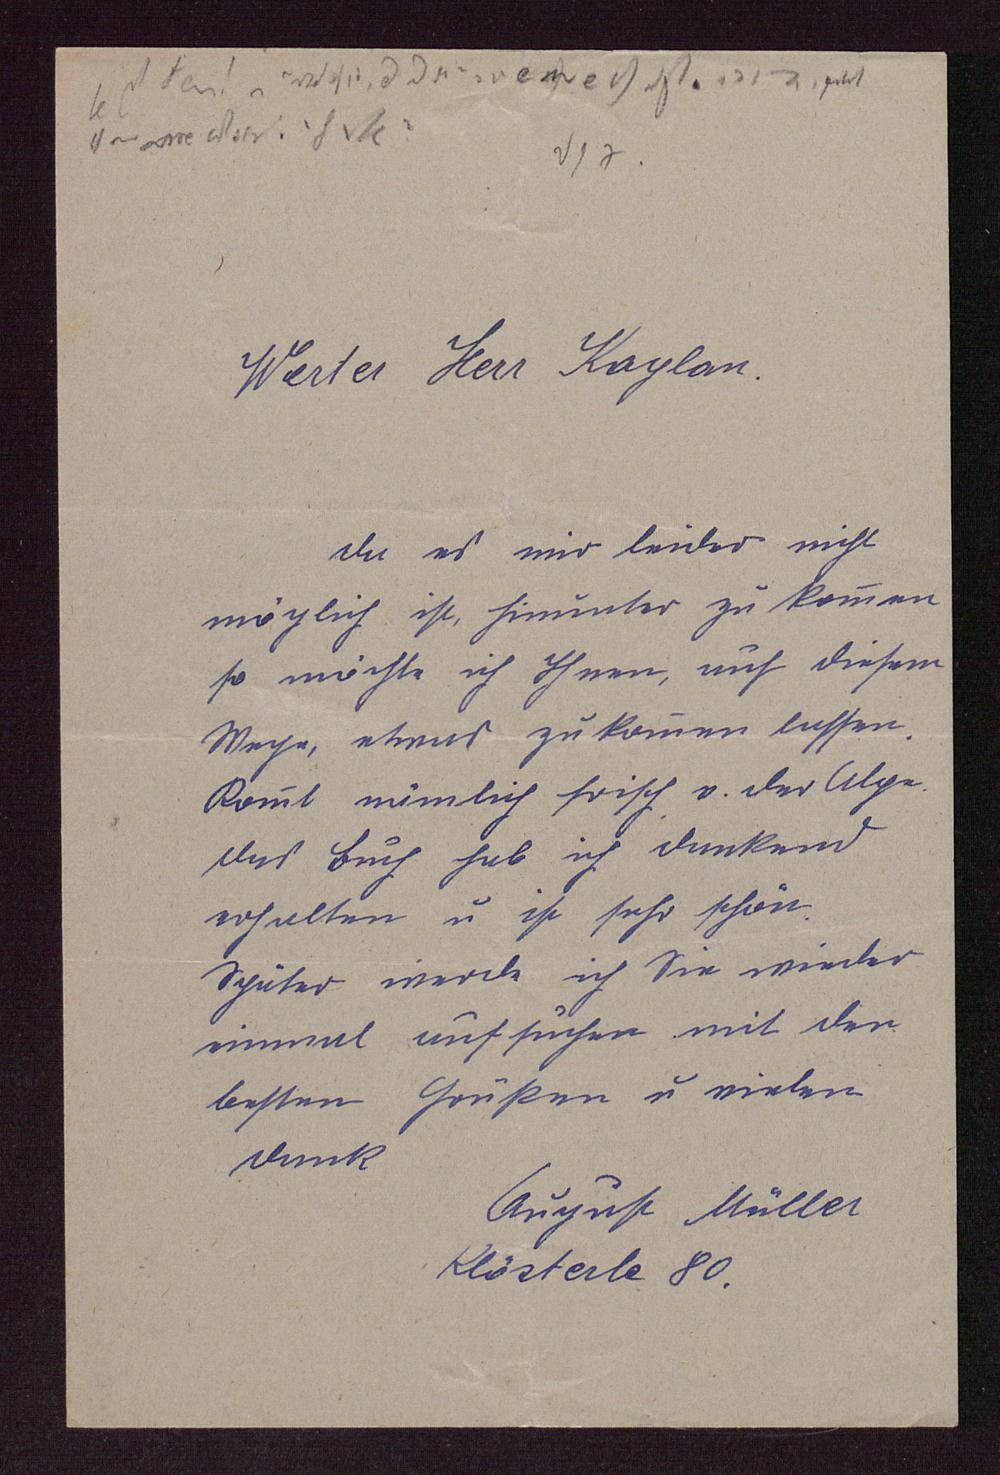 Werter Herr Kaplan.
da es mir leider nicht
möglich ist, hinunter zu kom̄en
so möchte ich Ihnen, auf diesem
Wege, etwas zukom̄en lassen.
Kom̄t nämlich frisch v. der Alpe.
das Buch hab ich dankend
erhalten u ist sehr schön.
Später werde ich Sie wieder
einmal aufsuchen mit den
besten Grüßen u vielen
dank
August Müller
Klösterle 80.